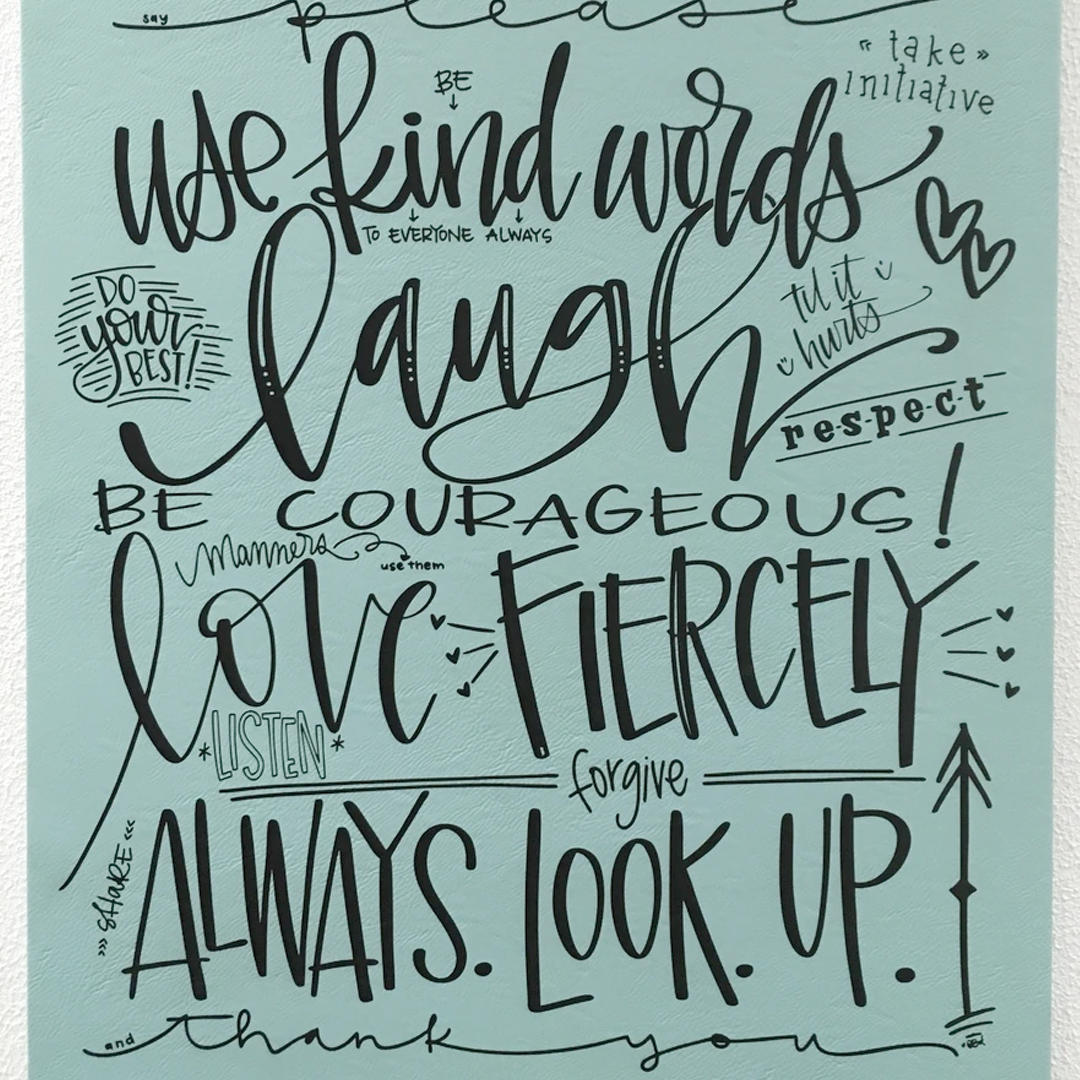 say please
« take »
initiative
BE
use kind words
TO EVERYONE ALWAYS
laugh
til it
hurts
DO
your
BEST!
r-e-s-p-e-c-t
BE COURAGEOUS!
manners
use them
love FIERCELY
*LISTEN*
forgive
»» SHARE «««
ALWAYS. LOOK. UP.
and thank you